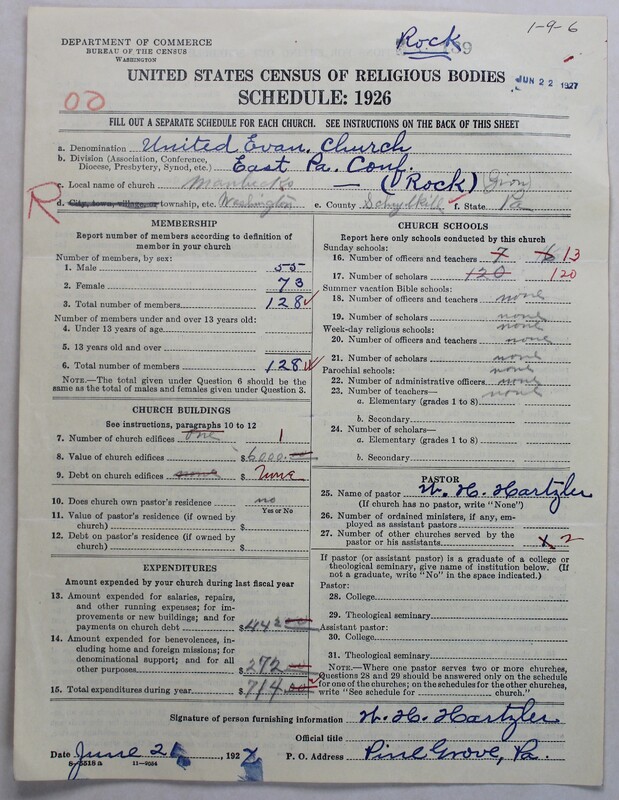 1-9-6
Rock
DEPARTMENT OF COMMERCE
BUREAU OF THE CENSUS
WASHINGTON
JUN 22 1927
UNITED STATES CENSUS OF RELIGIOUS BODIES
SCHEDULE: 1926
FILL OUT A SEPARATE SCHEDULE FOR EACH CHURCH. SEE INSTRUCTIONS ON THE BACK OF THIS SHEET
a. Denomination United Evan. Church
b. Division (Association, Conference, Diocese, Presbytery, Synod, etc.) East Pa. Conf.
c. Local name of church Manbecks — (Rock)
R
d. City, town, village, or township, etc. Washington e. County Schuylkill f. State Pa
MEMBERSHIP
Report number of members according to definition of
member in your church
Number of members, by sex:
1. Male 55
2. Female 73
3. Total number of members 128
Number of members under and over 13 years old:
4. Under 13 years of age
5. 13 years old and over
6. Total number of members 128
NOTE.—The total given under Question 6 should be
the same as the total of males and females given under Question 3.
CHURCH BUILDINGS
See instructions, paragraphs 10 to 12
7. Number of church edifices One 1
8. Value of church edifices $6000.00
9. Debt on church edifices none $ None
10. Does church own pastor's residence no
Yes or No
11. Value of pastor's residence (if owned by
church) $
12. Debt on pastor's residence (if owned by
church) $
EXPENDITURES
Amount expended by your church during last fiscal year
13. Amount expended for salaries, repairs,
and other running expenses; for im-
provements or new buildings; and for
payments on church debt $442.00
14. Amount expended for benevolences,
including home and foreign missions; for
denominational support; and for all
other purposes $272.00
15. Total expenditures during year $714.00
CHURCH SCHOOLS
Report here only schools conducted by this church
Sunday schools:
16. Number of officers and teachers 7 6 13
17. Number of scholars 120 120
Summer vacation Bible schools:
18. Number of officers and teachers none
19. Number of scholars none
Week-day religious schools: none
20. Number of officers and teachers none
21. Number of scholars none
Parochial schools: none
22. Number of administrative officers none
23. Number of teachers— none
a. Elementary (grades 1 to 8)
b. Secondary
24. Number of scholars—
a. Elementary (grades 1 to 8)
b. Secondary
PASTOR
25. Name of pastor W. H. Hartzler
(If church has no pastor, write "None")
26. Number of ordained ministers, if any, em-
ployed as assistant pastors
27. Number of other churches served by the
pastor or his assistants 2
If pastor (or assistant pastor) is a graduate of a college or
theological seminary, give name of institution below. (If
not a graduate, write "No" in the space indicated.)
Pastor:
28. College
29. Theological seminary
Assistant pastor:
30. College
31. Theological seminary
NOTE.—Where one pastor serves two or more churches,
Questions 28 and 29 should be answered only on the schedule
for one of the churches; on the schedules for the other churches,
write "See schedule for church."
Signature of person furnishing information W. H. Hartzler
Official title
Date June 21, 1927 P. O. Address Pine Grove, Pa.
8-5518 a 11-9654